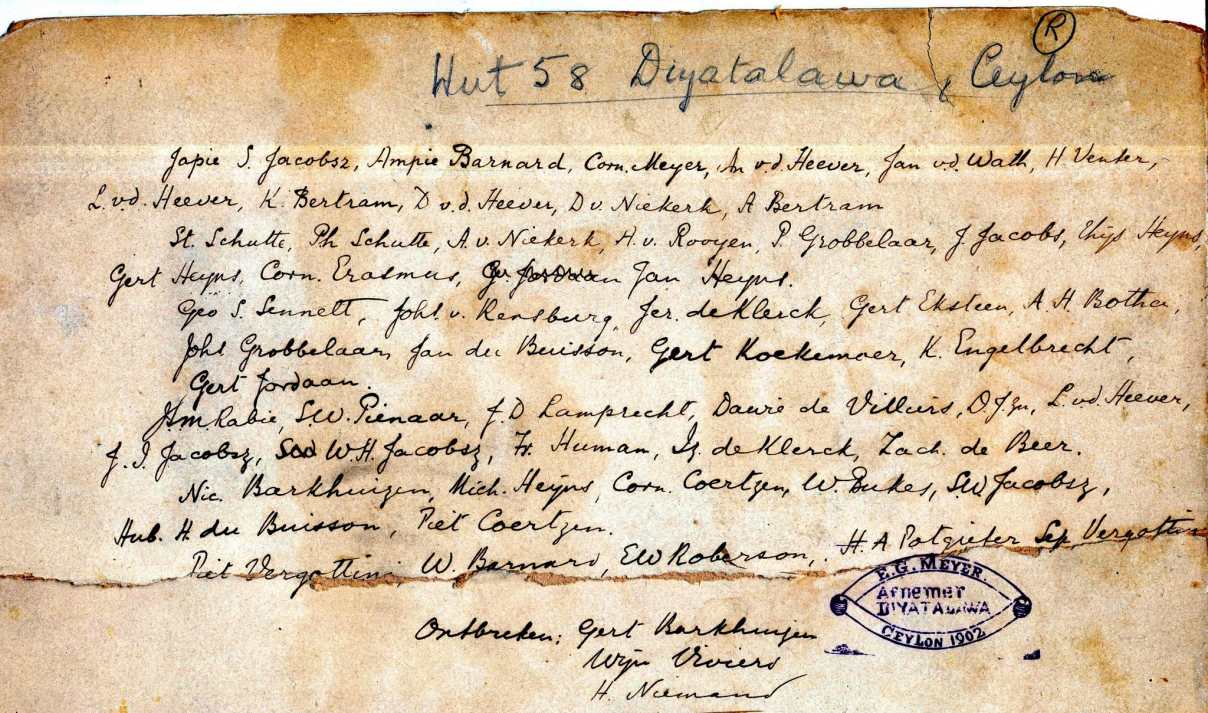 R
Hut 58 Diyatalawa, Ceylon
Japie S. Jacobsz, Ampie Barnard, Corn. Meyer, An v.d. Heever, Jan v.d. Wath, H Venter,
L. v.d. Heever, K. Bertram, D v.d. Heever, D v. Niekerk, A Bertram
St. Schutte, Ph Schutte, A. v. Niekerk, H. v. Rooyen, P. Grobbelaar, J. Jacobs, Thys Heyns,
Gert Heyns, Corn. Erasmus, Jan Heyns.
Geo S. Sennett, Johs v. Rensburg, Jer. de Klerck, Gert Eksteen, A. H. Botha,
Johs Grobbelaar, Jan du Buisson, Gert Koekemoer, K. Engelbrecht,
Gert Jordaan.
Rabie, S.W. Pienaar, J. D Lamprecht, Dawie de Villiers, D.J.zn, L. v.d. Heever,
J. J. Jacobsz, W. H. Jacobsz, Fr. Human, Iz. de Klerck, Zach. de Beer.
Nic. Barkhuizen, Mich. Heyns, Corn. Coertzen, W. Dukes, S W Jacobsz,
Hub. H. du Buisson, Piet Coertzen.
Piet Vergottini, W. Barnard, E W Roberson, H. A Potgieter Sep. Vergottini
E. G. MEYER.
Afnemer
DIYATALAWA
CEYLON 1902
Ontbreken: Gert Barkhuizen
Wijn Viviers
H. Niemand